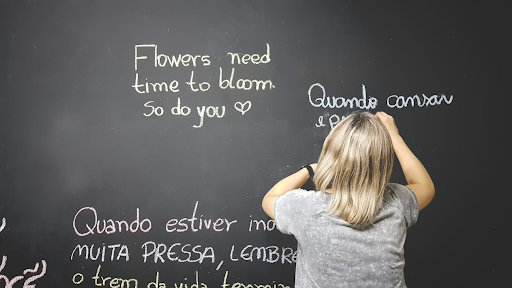 Flowers need
time to bloom.
So do you
Quando cansar
e
Quando estiver
MUITA PRESSA,
o trem da vida